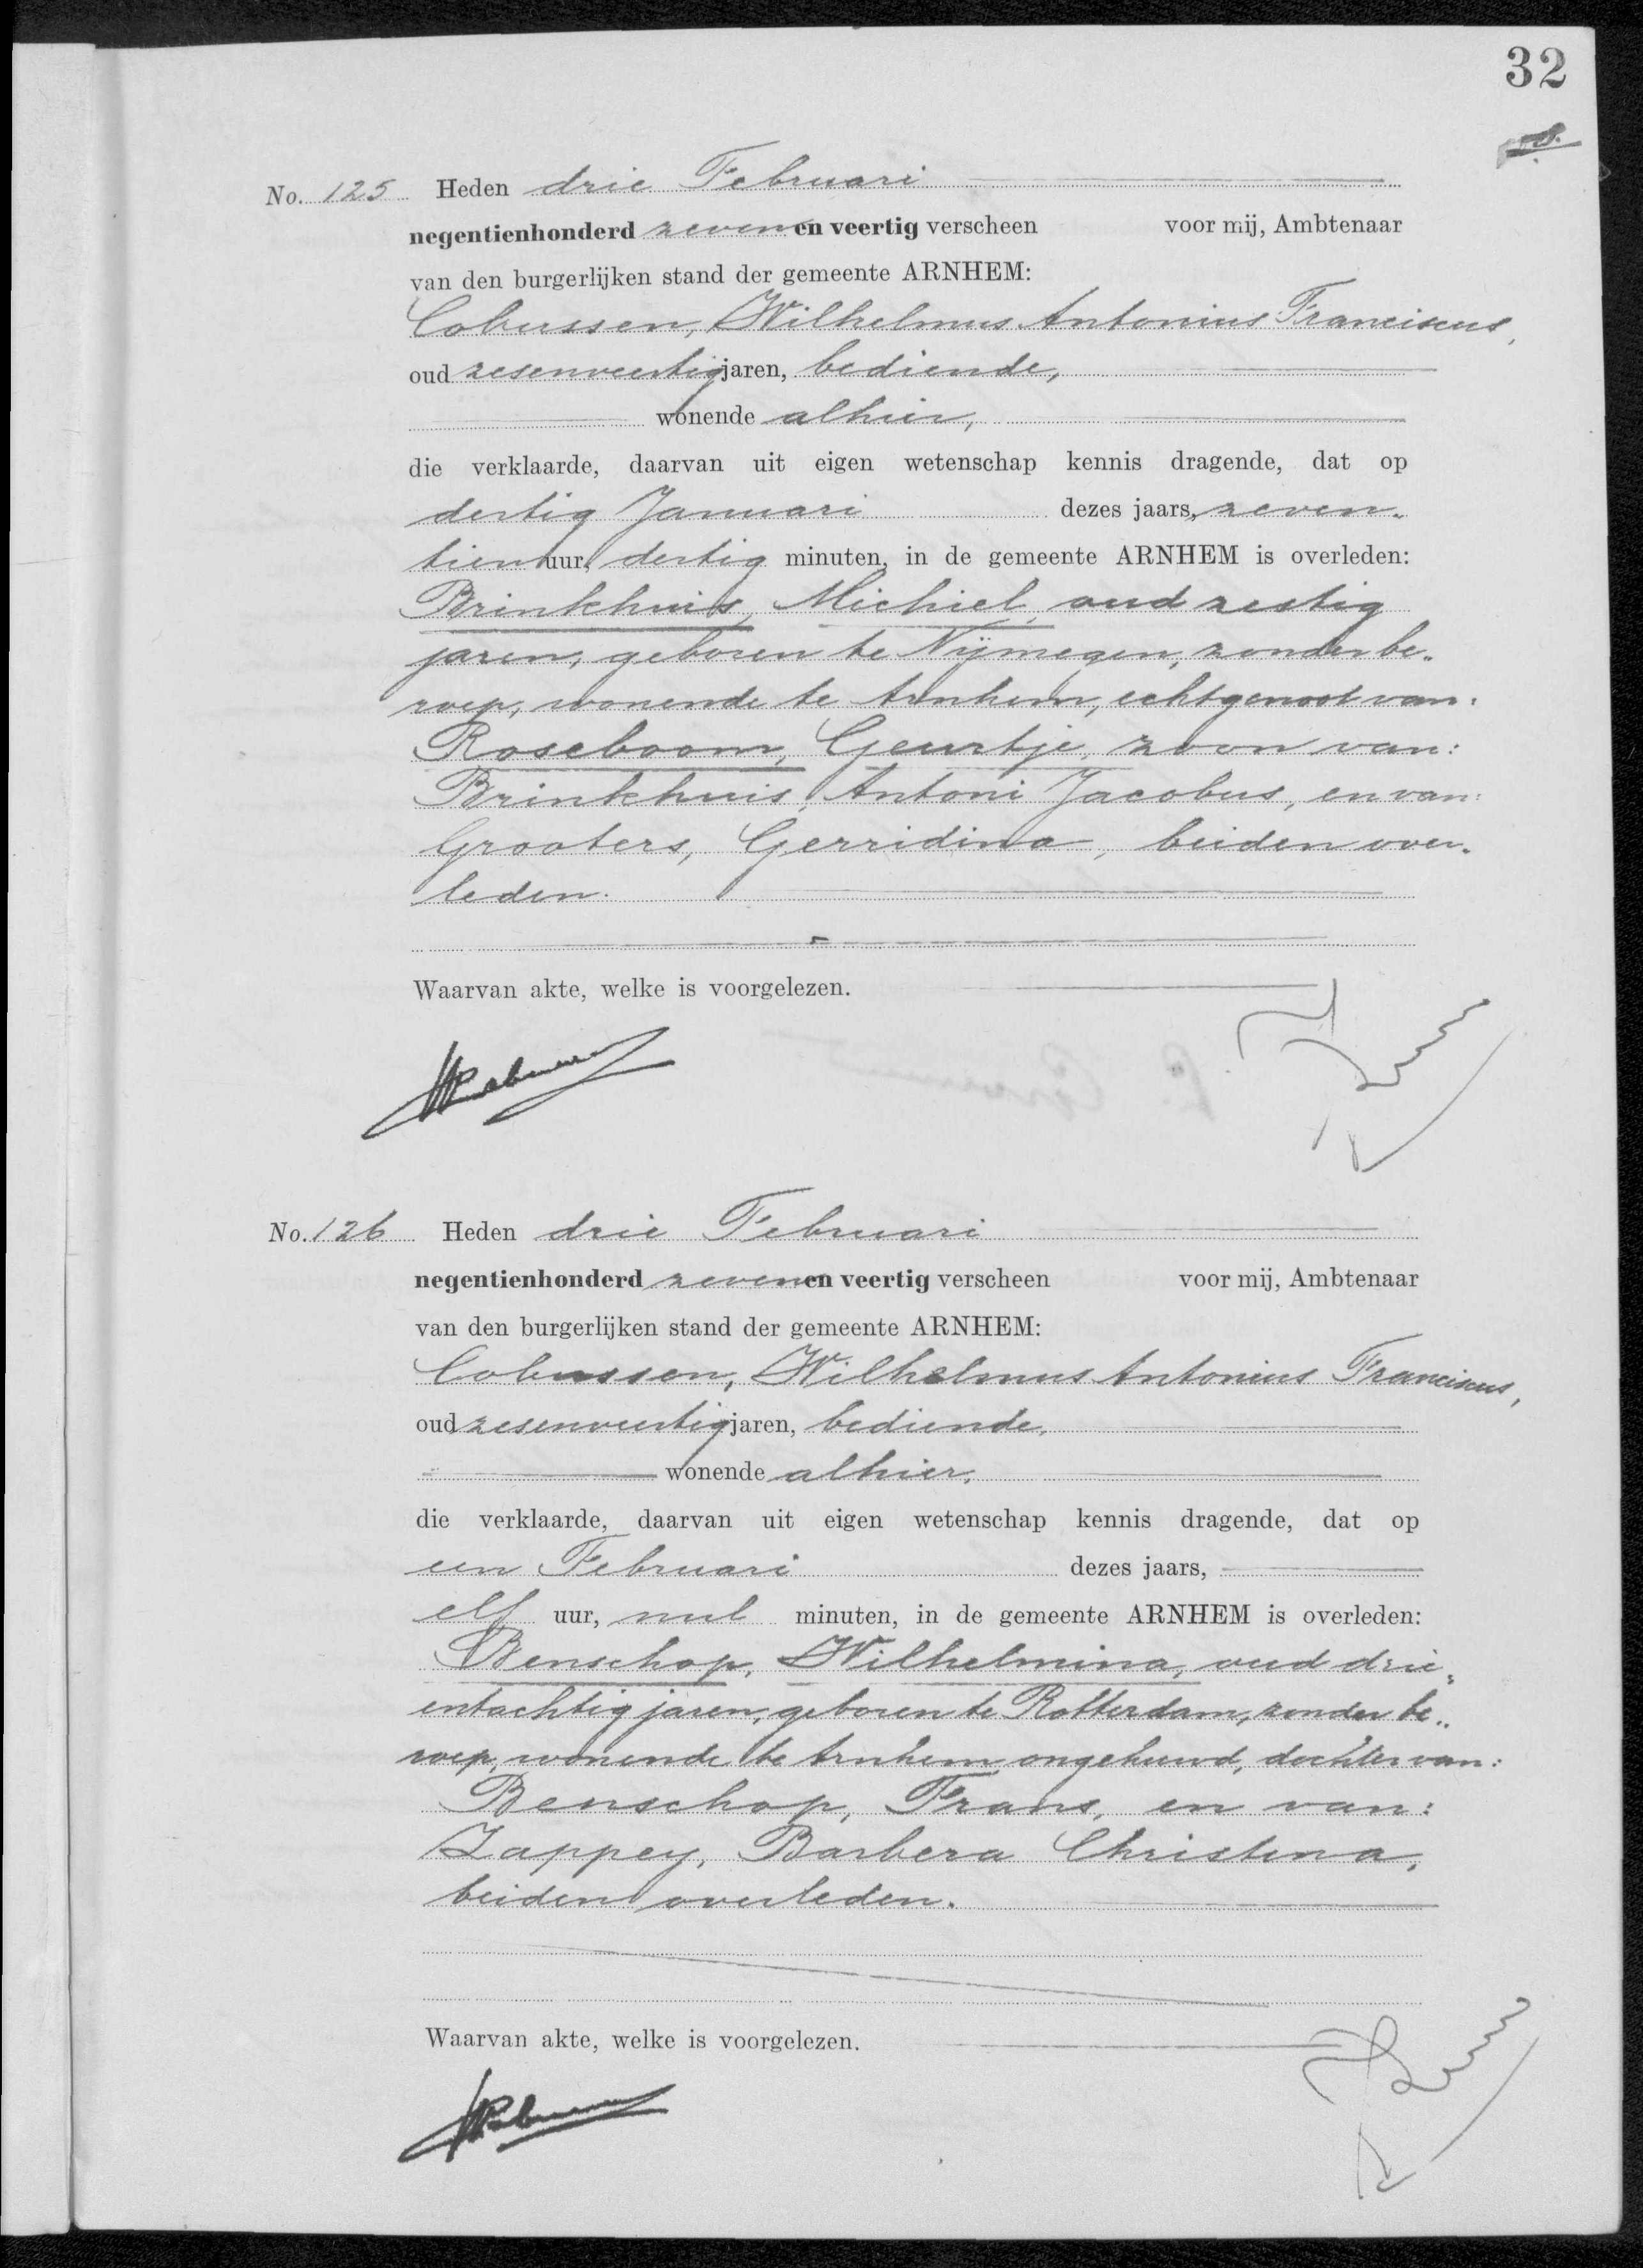 32
No. 125 Heden drie Februari
negentienhonderd zeven en veertig verscheen voor mij, Ambtenaar
van den burgerlijken stand der gemeente ARNHEM:
Cobussen, Wilhelmus Antonius Franciscus,
oud zesenveertig jaren, bediende,
wonende alhier,
die verklaarde, daarvan uit eigen wetenschap kennis dragende, dat op
dertig Januari dezes jaars, zeven-
tien uur, dertig minuten, in de gemeente ARNHEM is overleden:
Brinkhuis, Michiel, oud zestig
jaren, geboren te Nijmegen, zonder be-
roep, wonende te Arnhem, echtgenoot van:
Roseboom, Geurtje, zoon van:
Brinkhuis, Antoni Jacobus, en van:
Grooters, Gerridina, beiden over-
leden.
Waarvan akte, welke is voorgelezen.
No. 126 Heden drie Februari
negentienhonderd zeven en veertig verscheen voor mij, Ambtenaar
van den burgerlijken stand der gemeente ARNHEM:
Cobussen, Wilhelmus Antonius Franciscus,
oud zesenveertig jaren, bediende,
wonende alhier,
die verklaarde, daarvan uit eigen wetenschap kennis dragende, dat op
een Februari dezes jaars,
elf uur, nul minuten, in de gemeente ARNHEM is overleden:
Benschop, Wilhelmina, oud drie-
entachtig jaren, geboren te Rotterdam, zonder be-
roep, wonende te Arnhem ongehuwd, dochter van:
Benschop, Frans, en van:
Zappey, Barbera Christina,
beiden overleden.
Waarvan akte, welke is voorgelezen.